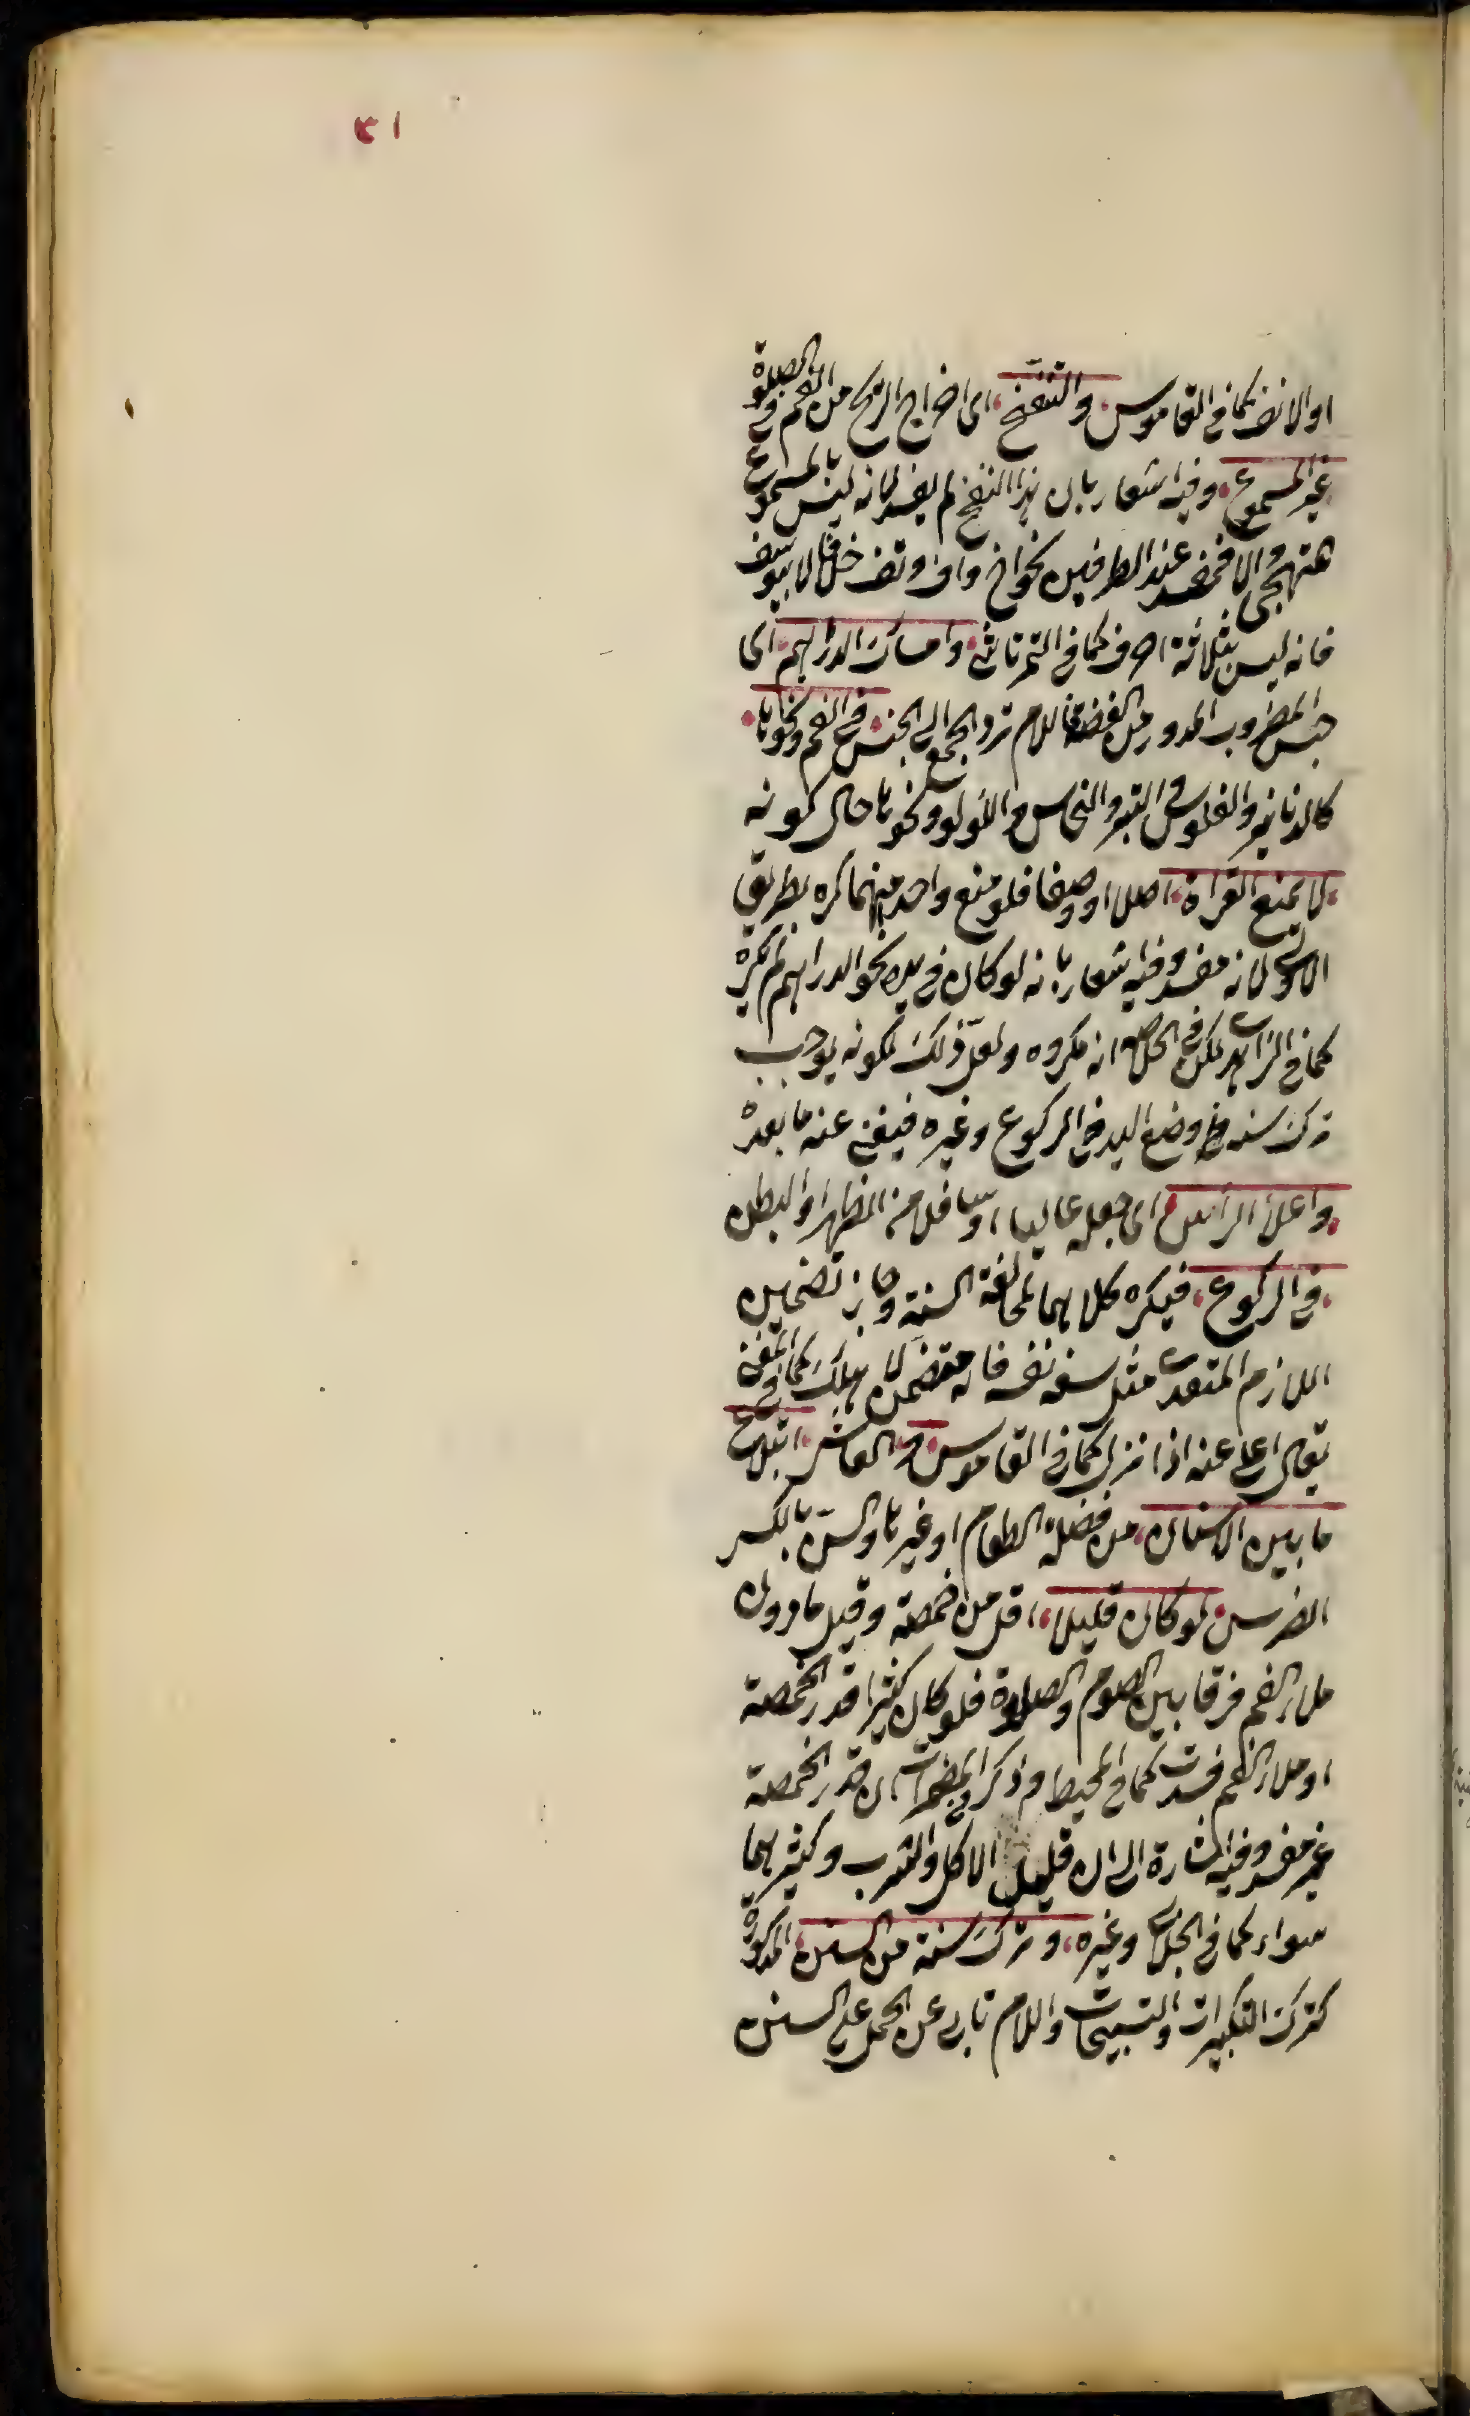 ٤١
او الانف كما في القاموس والتنفخ اى اخراج الريح من الفم في الصلوة
غير المسموع وفيه اشعار بان هذا النفخ لم يفسد لانه ليس بالمسموع
متهجى والا فمفسد عند الطرفين نحو اخ واف وتف خلافا لابى يوسف
فانه ليس بثلاثة احرف كما في التمرتاشى وامساك الدراهم اى
جنس المضروب المدور من الفضة فاللام ترد الجمع الى الجنس في الفم ونحوها
كالدنانير والفلوس والتبر والنحاس واللؤلؤ ونحوها حال كونه
لا يمنع القراءة اصلا او وصفا فلو منع واحد منهما كره بطريق
الاولى لانه مفسد وفيه اشعار بانه لو كان في يده نحو الدراهم لم يكره
كما في الزاهدى لكن في الخلاصة انه مكروه ولعل ذلك لكونه يوجب
ترك سنة وضع اليد في الركوع وغيره فيغنى عنه ما بعده
واعلاء الراس اى جعله عاليا او سافلا من الظهر او البطن
في الركوع فيكره كلاهما لمخالفة السنة وجاز تضمين
اللازم المتعدى مثل سفه نفسه فانه متضمن لاهلك كما في المغنى
يقال اعلى عنه اذا نزل كما في القاموس و العاشر ابتلاع
ما بين الاسنان من فضلة الطعام او غيرها والسن بالكسر
الضرس لو كان قليلا اقل من حمصة وقيل ما دون
ملء الفم فرقا بين الصوم والصلاوة فلو كان كثيرا قدر الحمصة
او ملء الفم فسدت كما في المحيط وذكر في المضمرات ان قدر الحمصة
غير مفسد وفيه اشارة الى ان قليل الاكل والشرب وكثيرهما
سواء كما في الجلابى وغيره وترك سنة من السنن المذكورة
كترك التكبيرات والتسبيحات واللام تابى عن الحمل على السنن